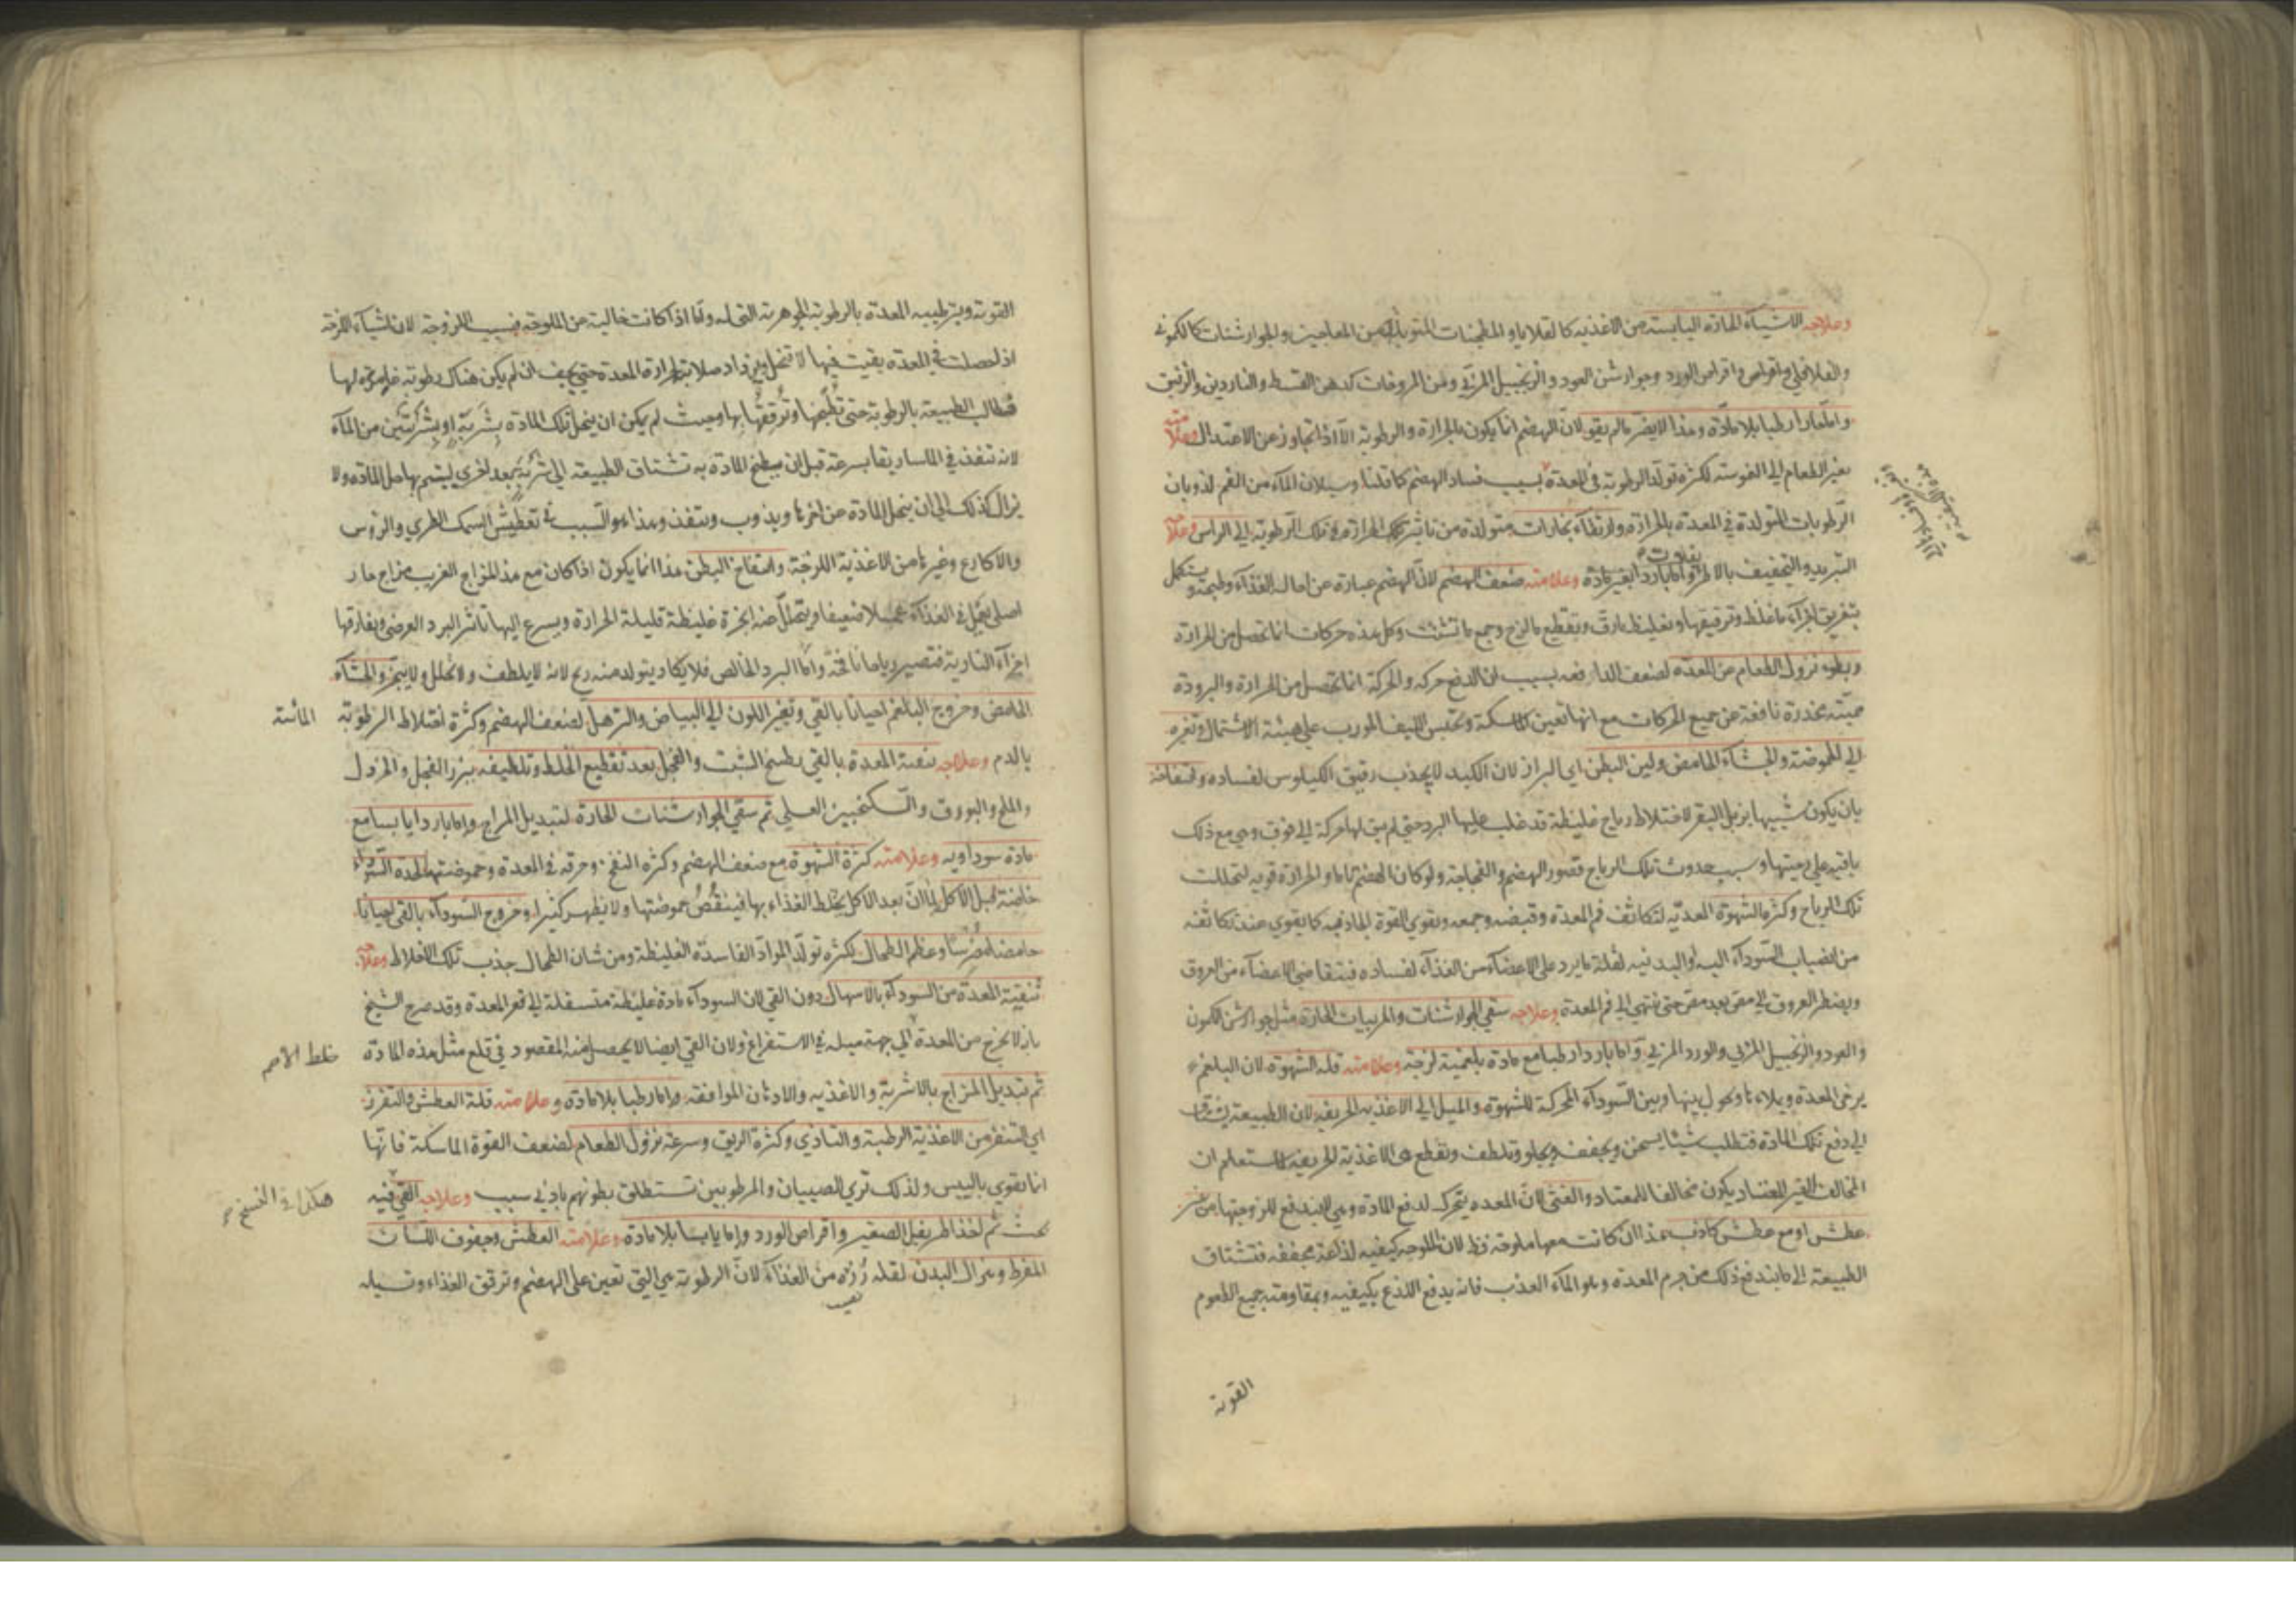 وعلاجه الاشياء الحارة اليابسة من الاغذية كالقلايا والمطجنات المتوبلة ومن المعاجين والجوارشنات كالكموني
والفلافلي واقراص الورد وجوارشن العود والزنجبيل المربي ومن المروخات كدهن القسط والناردين والزنبق
واما حارا رطبا بلا مادة وهذا لا يضر ما لم يقو لان الهضم انما يكون بالحرارة والرطوبة الا اذا تجاوز عن الاعتدال وعلامته
تغير الطعام الي لكثرة تولد الرطوبة في المعدة بسبب فساد الهضم كما قلنا وسيلان الماء من الفم لذوبان
الرطوبات المتولدة في المعدة بالحرارة وارتقاء بخارات متولدة من تاثير تلك الحرارة في تلك الرطوبة الي الراس وعلاجه
التبريد والتجفيف واما باردا بغير مادة وعلامته ضعف الهضم لان الهضم عبارة عن احالة الغذاء وطبخه ويستكمل
بتفريق اجزاء ما غلظ وترقيقها وتغليظ ما رق وتقطيع ما لزج وجمع ما تشتت وكل هذه حركات انما تحصل من الحرارة
وبطء نزول الطعام من المعدة لضعف الدافعة بسبب ان الدفع حركة والحركة انما تحصل من الحرارة والبرودة
مميتة مخدرة نافعة من جميع الحركات مع انها تعين الماسكة وتحبس الليف المورب علي هيئة الاشتمال وتغيره
الي الحموضة والجشاء الحامض ولين البطن اي البراز لان الكبد لا يجذب رقيق الكيلوس لفساده وانتفاخه
بان يكون شبيها بزبل البقر لاختلاط رياح غليظة قد غلب عليها البرد حتي لم يبق لها حركة الي فوق وهي مع ذلك
باقية علي ريحيتها وسبب حدوث تلك الرياح قصور الهضم والفجاجة ولو كان الهضم تاما والحرارة قوية لتحللت
تلك الرياح وكثرة الشهوة المعدية لتكاثف فم المعدة وقبضه وجمعه وتقوي القوة الجاذبة كما يقوي عند تكاثفه
من انصباب السوداء اليه او البدنية لقلة ما يرد علي الاعضاء من الغذاء لفساده فيتقاضي الاعضاء من العروق
ويضطر العروق الي مص بعد مص حتي ينتهي الي فم المعدة وعلاجه سقي الجوارشنات والمربيات الحارة مثل جوارشن الكمون
والعود والزنجبيل المربي والورد المربي واما باردا رطبا مع مادة بلغمية لزجة وعلامته قلة الشهوة لان البلغم
يرخي المعدة ويملاءها ويحول بينها وبين السوداء المحركة للشهوة والميل الي الاغذية الحريفة لان الطبيعة يشتاق
الي دفع تلك المادة فتطلب شيئا يسخن ويجفف ويجلو ويلطف ويقطع هي الاغذية الحريفة ان
المخالف الغير المعتاد يكون مخالفا للمعتاد والغثي لان المعدة يتحرك لدفع المادة وهي لا يندفع للزوجتها من غير
عطش او مع عطش كاذب هذا ان كانت معها ملوحة فقط لان الملوحة كيفية لذاعة مجففة فتشتاق
الطبيعة الي ما يندفع ذلك من جرم المعدة وهو الماء العذب فانه يدفع اللذع بكيفيته وبمقاومته جميع الطعوم
القوية
القوية وبترطيبه المعدة بالرطوبة الجوهرية التي له واما اذا كانت خالية من الملوحة فبسبب اللزوجة لان الاشياء اللزجة
اذا حصلت في المعدة بقيت فيها لا تنحل ويزداد صلابة لحرارة المعدة حتي يجف ان لم يكن هناك رطوبة لها
فتطالب الطبيعة بالرطوبة حتي تليّنها وترققها بها وحيث لم يكن ان ينحل تلك المادة بشربة او بشربتين من الماء
لانه تنفذ في الماساريقا بسرعة قبل ان ينطبخ المادة به تشتاق الطبيعة الي شربة بعد اخري ليتم بها حل المادة ولا
يزال كذلك الي ان ينحل المادة عن اخرها ويذوب وينفذ وهذا هو السبب في تعطيش السمك الطري والرؤس
والاكارع وغيرها من الاغذية اللزجة وانتفاخ البطن هذا انما يكون اذا كان مع هذا المزاج الغريب مزاج حار
اصلي يعمل في الغذاء عملا ضعيفا ويتحلل عنه ابخرة غليظة قليلة الحرارة ويسرع اليها تاثر البرد العرضي ويفارقها
اجزاء النارية فتصير رياحا نافخة واما البرد الخالص فلا يكاد يتولد منه ريح لانه لا يلطف ولا يحلل ولا يبخر والجشاء
الحامض وخروج البلغم احيانا بالقي وتغير اللون الي البياض والترهل لضعف الهضم وكثرة اختلاط الرطوبة المائية
بالدم وعلاجه تنقية المعدة بالقي بطبخ الشبت والفجل بعد تقطيع الخلط وتلطيفه ببزر الفجل والخردل
والملح والبورق والسكنجبين العسلي ثم سقي الجوارشنات الحارة لتبديل المزاج واما باردا يابسا مع
مادة سوداوية وعلامته كثرة الشهوة مع ضعف الهضم وكثرة النفخ وحرقة في المعدة وحموضتها لحدة السوداء
خاصة قبل الاكل لما ان بعد الاكل يختلط الغذاء بها فينقص حموضتها ولا يظهر كثيرا وخروج السوداء بالقي احيانا
حامضا مضرسا وعظم الطحال لكثرة تولد المواد الفاسدة الغليظة ومن شان الطحال جذب تلك الاخلاط وعلاجه
تنقية المعدة من السوداء بالاسهال دون القي لان السوداء مادة غليظة متسفلة الي قعر المعدة وقد صرح الشيخ
بان لا يخرج من المعدة الي جهة ميله في الاستفراغ ولان القي ايضا لا يحصل منه المقصود في قلع مثل هذه المادة
ثم تبديل المزاج بالاشربة والاغذية والادهان الموافقة واما رطبا بلا مادة وعلامته قلة العطش والتقزز
اي التنفر من الاغذية الرطبة والتاذي وكثرة الريق وسرعة نزول الطعام لضعف القوة الماسكة فانها
انما تقوي باليبس ولذلك تري الصبيان والمرطوبين تستطلق بطونهم بادني سبب وعلاجه القي فيه
بحث ثم اخذ اطريفل الصغير واقراص الورد واما يابسا بلا مادة وعلامته العطش وجفوف اللسان
المفرط وهزال البدن لقلة من الغذاء لان الرطوبة هي التي تعين علي الهضم وترقق الغذاء وتسيله
خلط الاصم
هكذا في النسخ